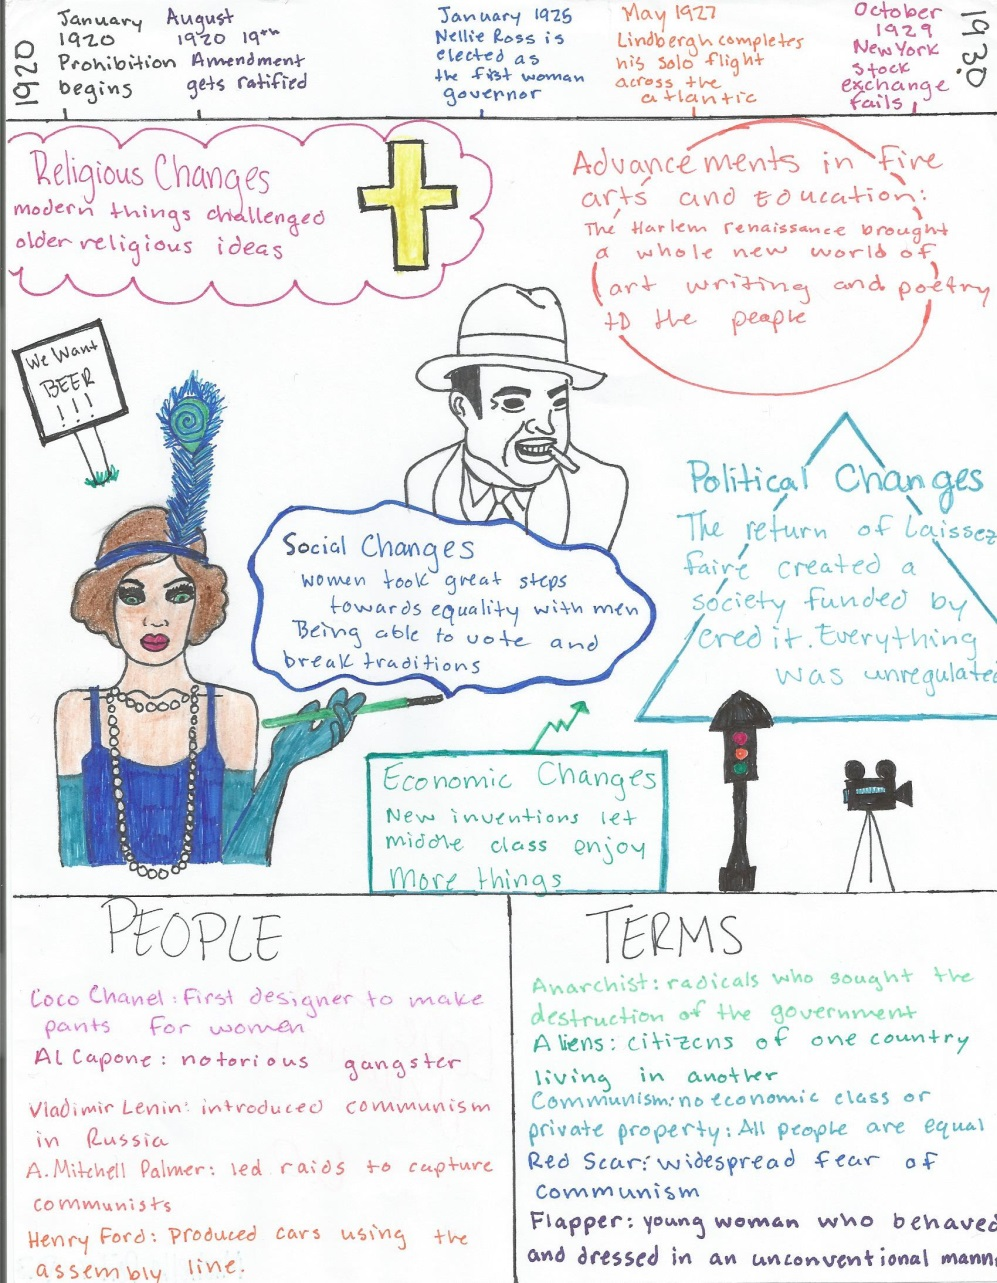 1920
January
1920
Prohibition
begins
August
1920 19th
Amendment
gets ratified
January 1925
Nellie Ross is
elected as
the first woman
governor
May 1927
Lindbergh completes
his solo flight
across the
atlantic
October
1929
New York
stock
exchange
fails
1930
Religious Changes
modern things challenged
older religious ideas
Advancements in fire
arts and Education:
The Harlem renaissance brought
a whole new world of
art writing and poetry
to the people
We Want
BEER
!!!
Political Changes
The return of Laissez
faire created a
society funded by
credit. Everything
was unregulated
Social Changes
women took great steps
towards equality with men
Being able to vote and
break traditions
Economic Changes
New inventions let
middle class enjoy
More things
PEOPLE
Coco Chanel: First designer to make
pants for women
Al Capone: notorious gangster
Vladimir Lenin: introduced communism
in Russia
A. Mitchell Palmer: led raids to capture
communists
Henry Ford: Produced cars using the
assembly line.
TERMS
Anarchist: radicals who sought the
destruction of the government
Aliens: citizens of one country
living in another
Communism: no economic class or
private property: All people are equal
Red Scar: widespread fear of
communism
Flapper: young woman who behaved
and dressed in an unconventional mann